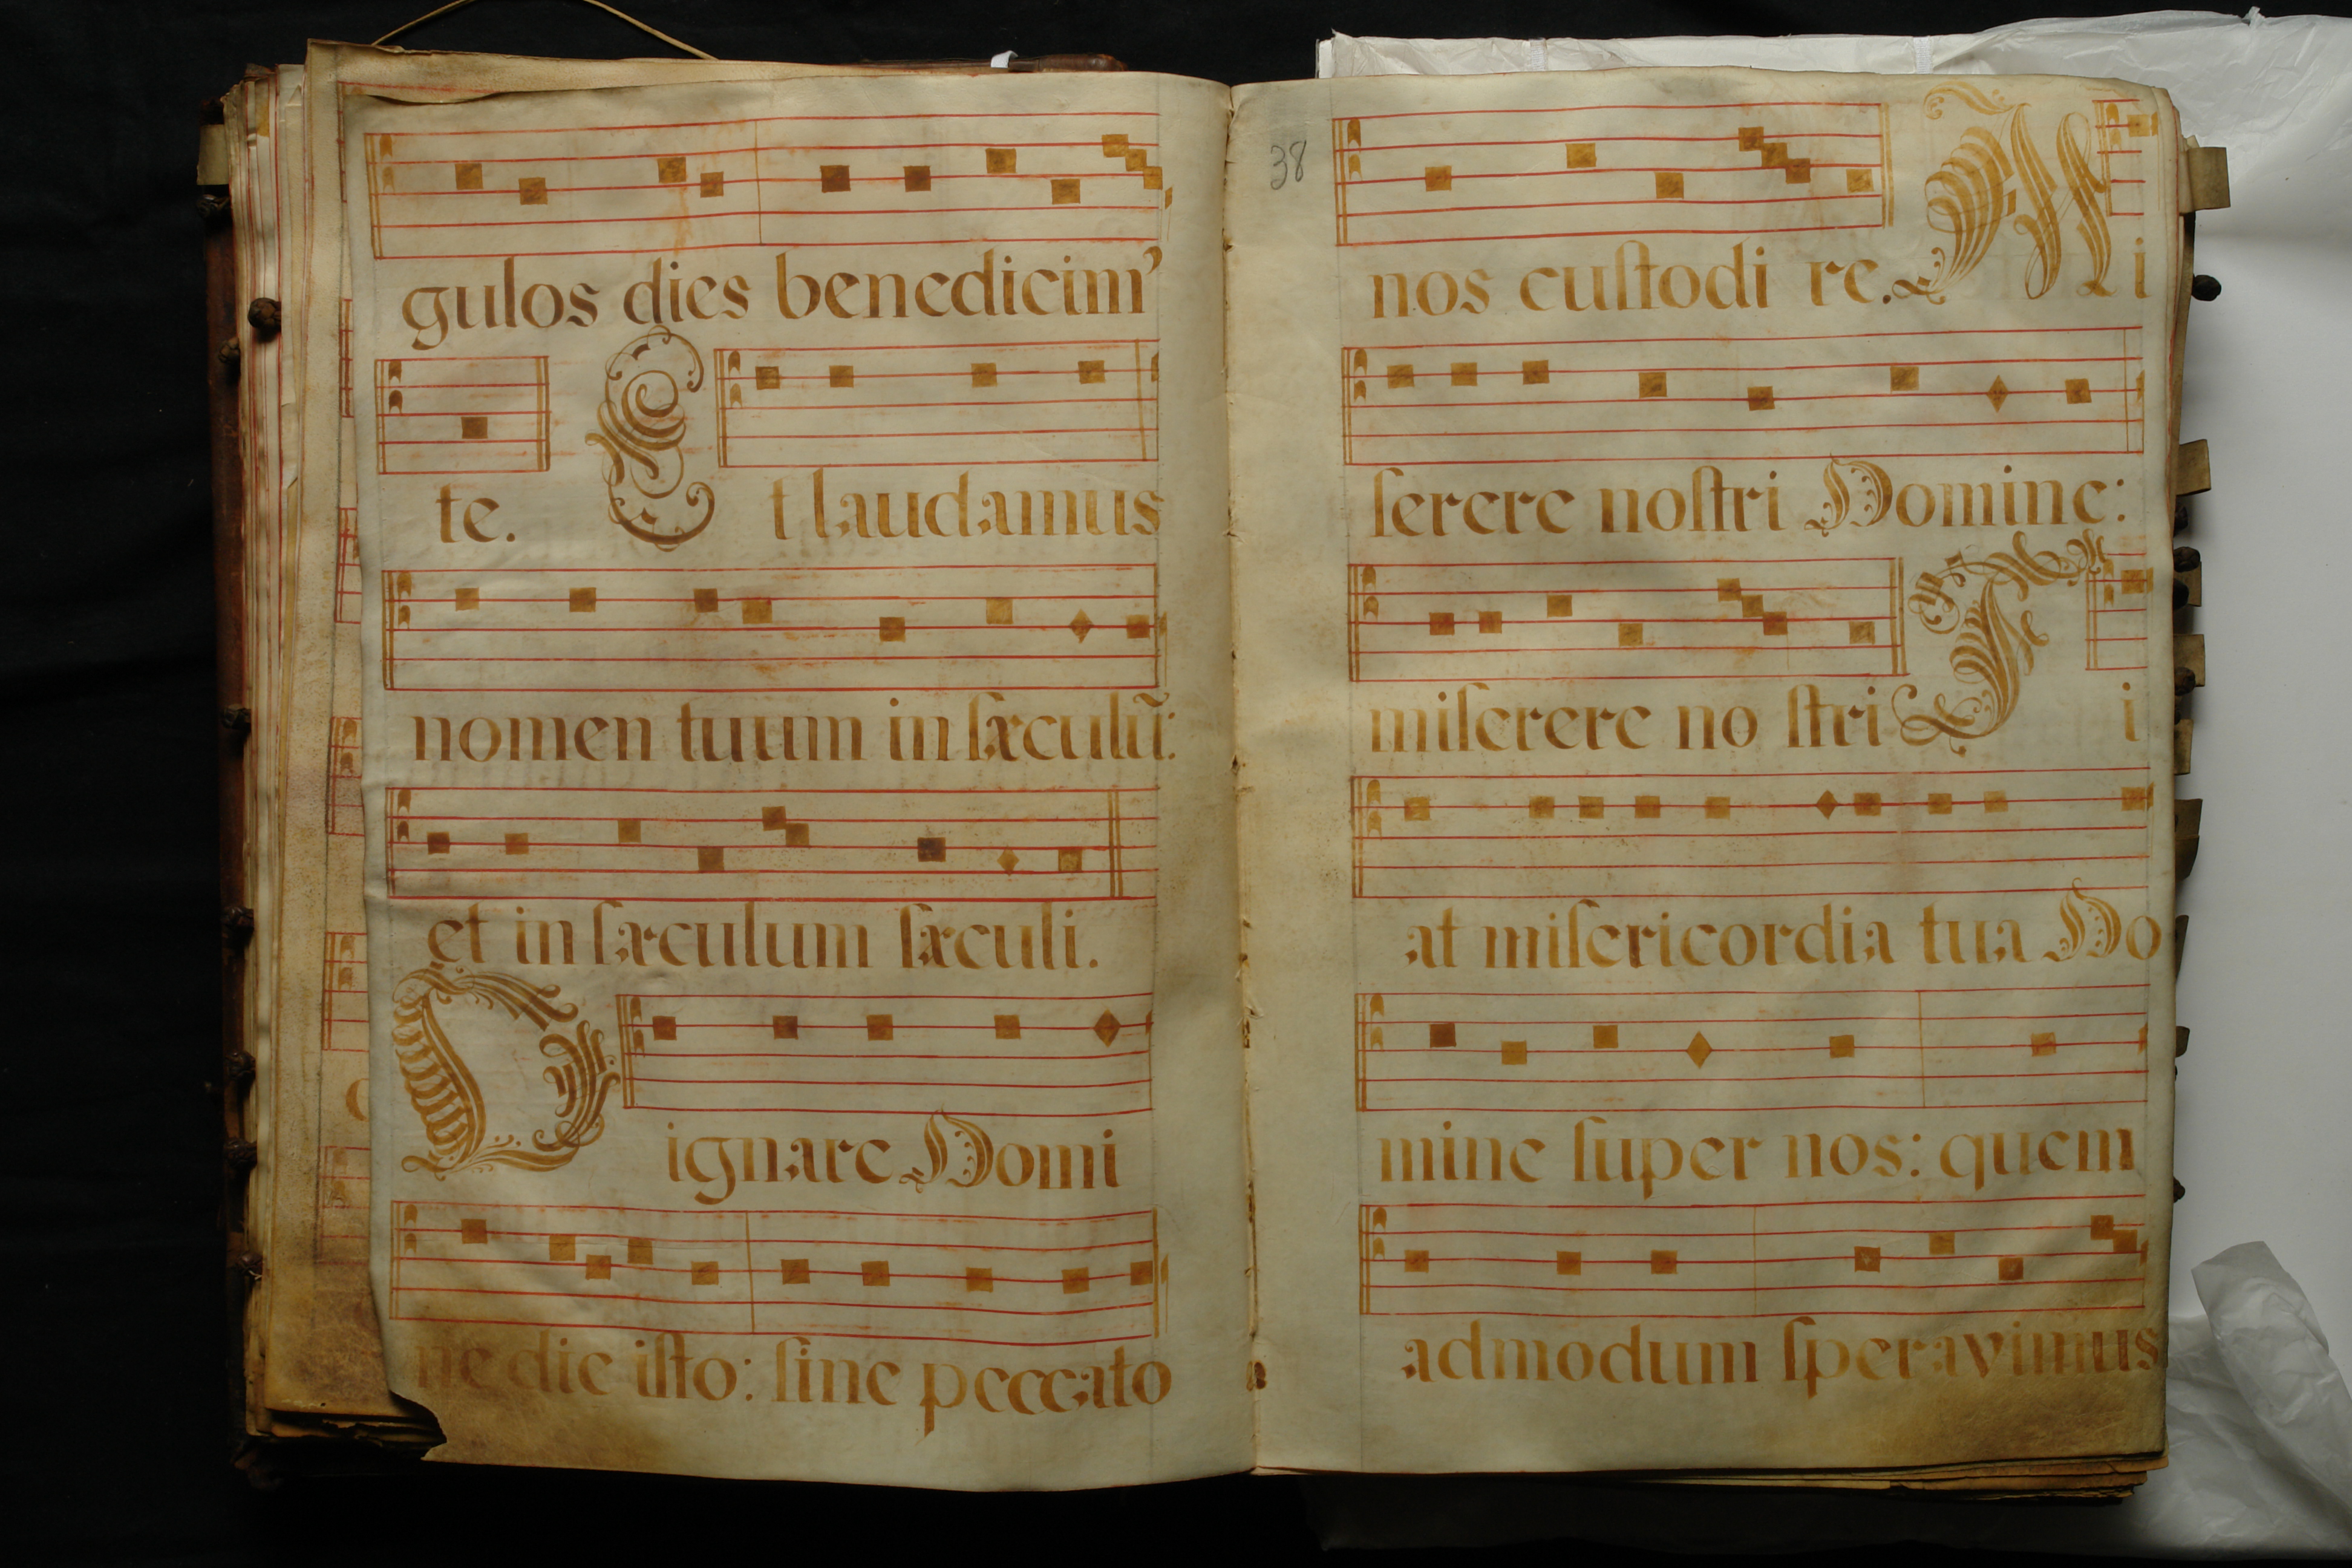 gulos dies benedicim’
te. Et laudamus
nomen tuum in ſæculũ:
et in ſæculum ſæculi.
Dignare Domi
ne die iſto: ſine peccato
38
nos cuſtodi re. Mi
ſerere noſtri Domine:
miſerere no ſtri Fi
at miſericordia tua Do
mine ſuper nos: quem
admodum ſperavimus